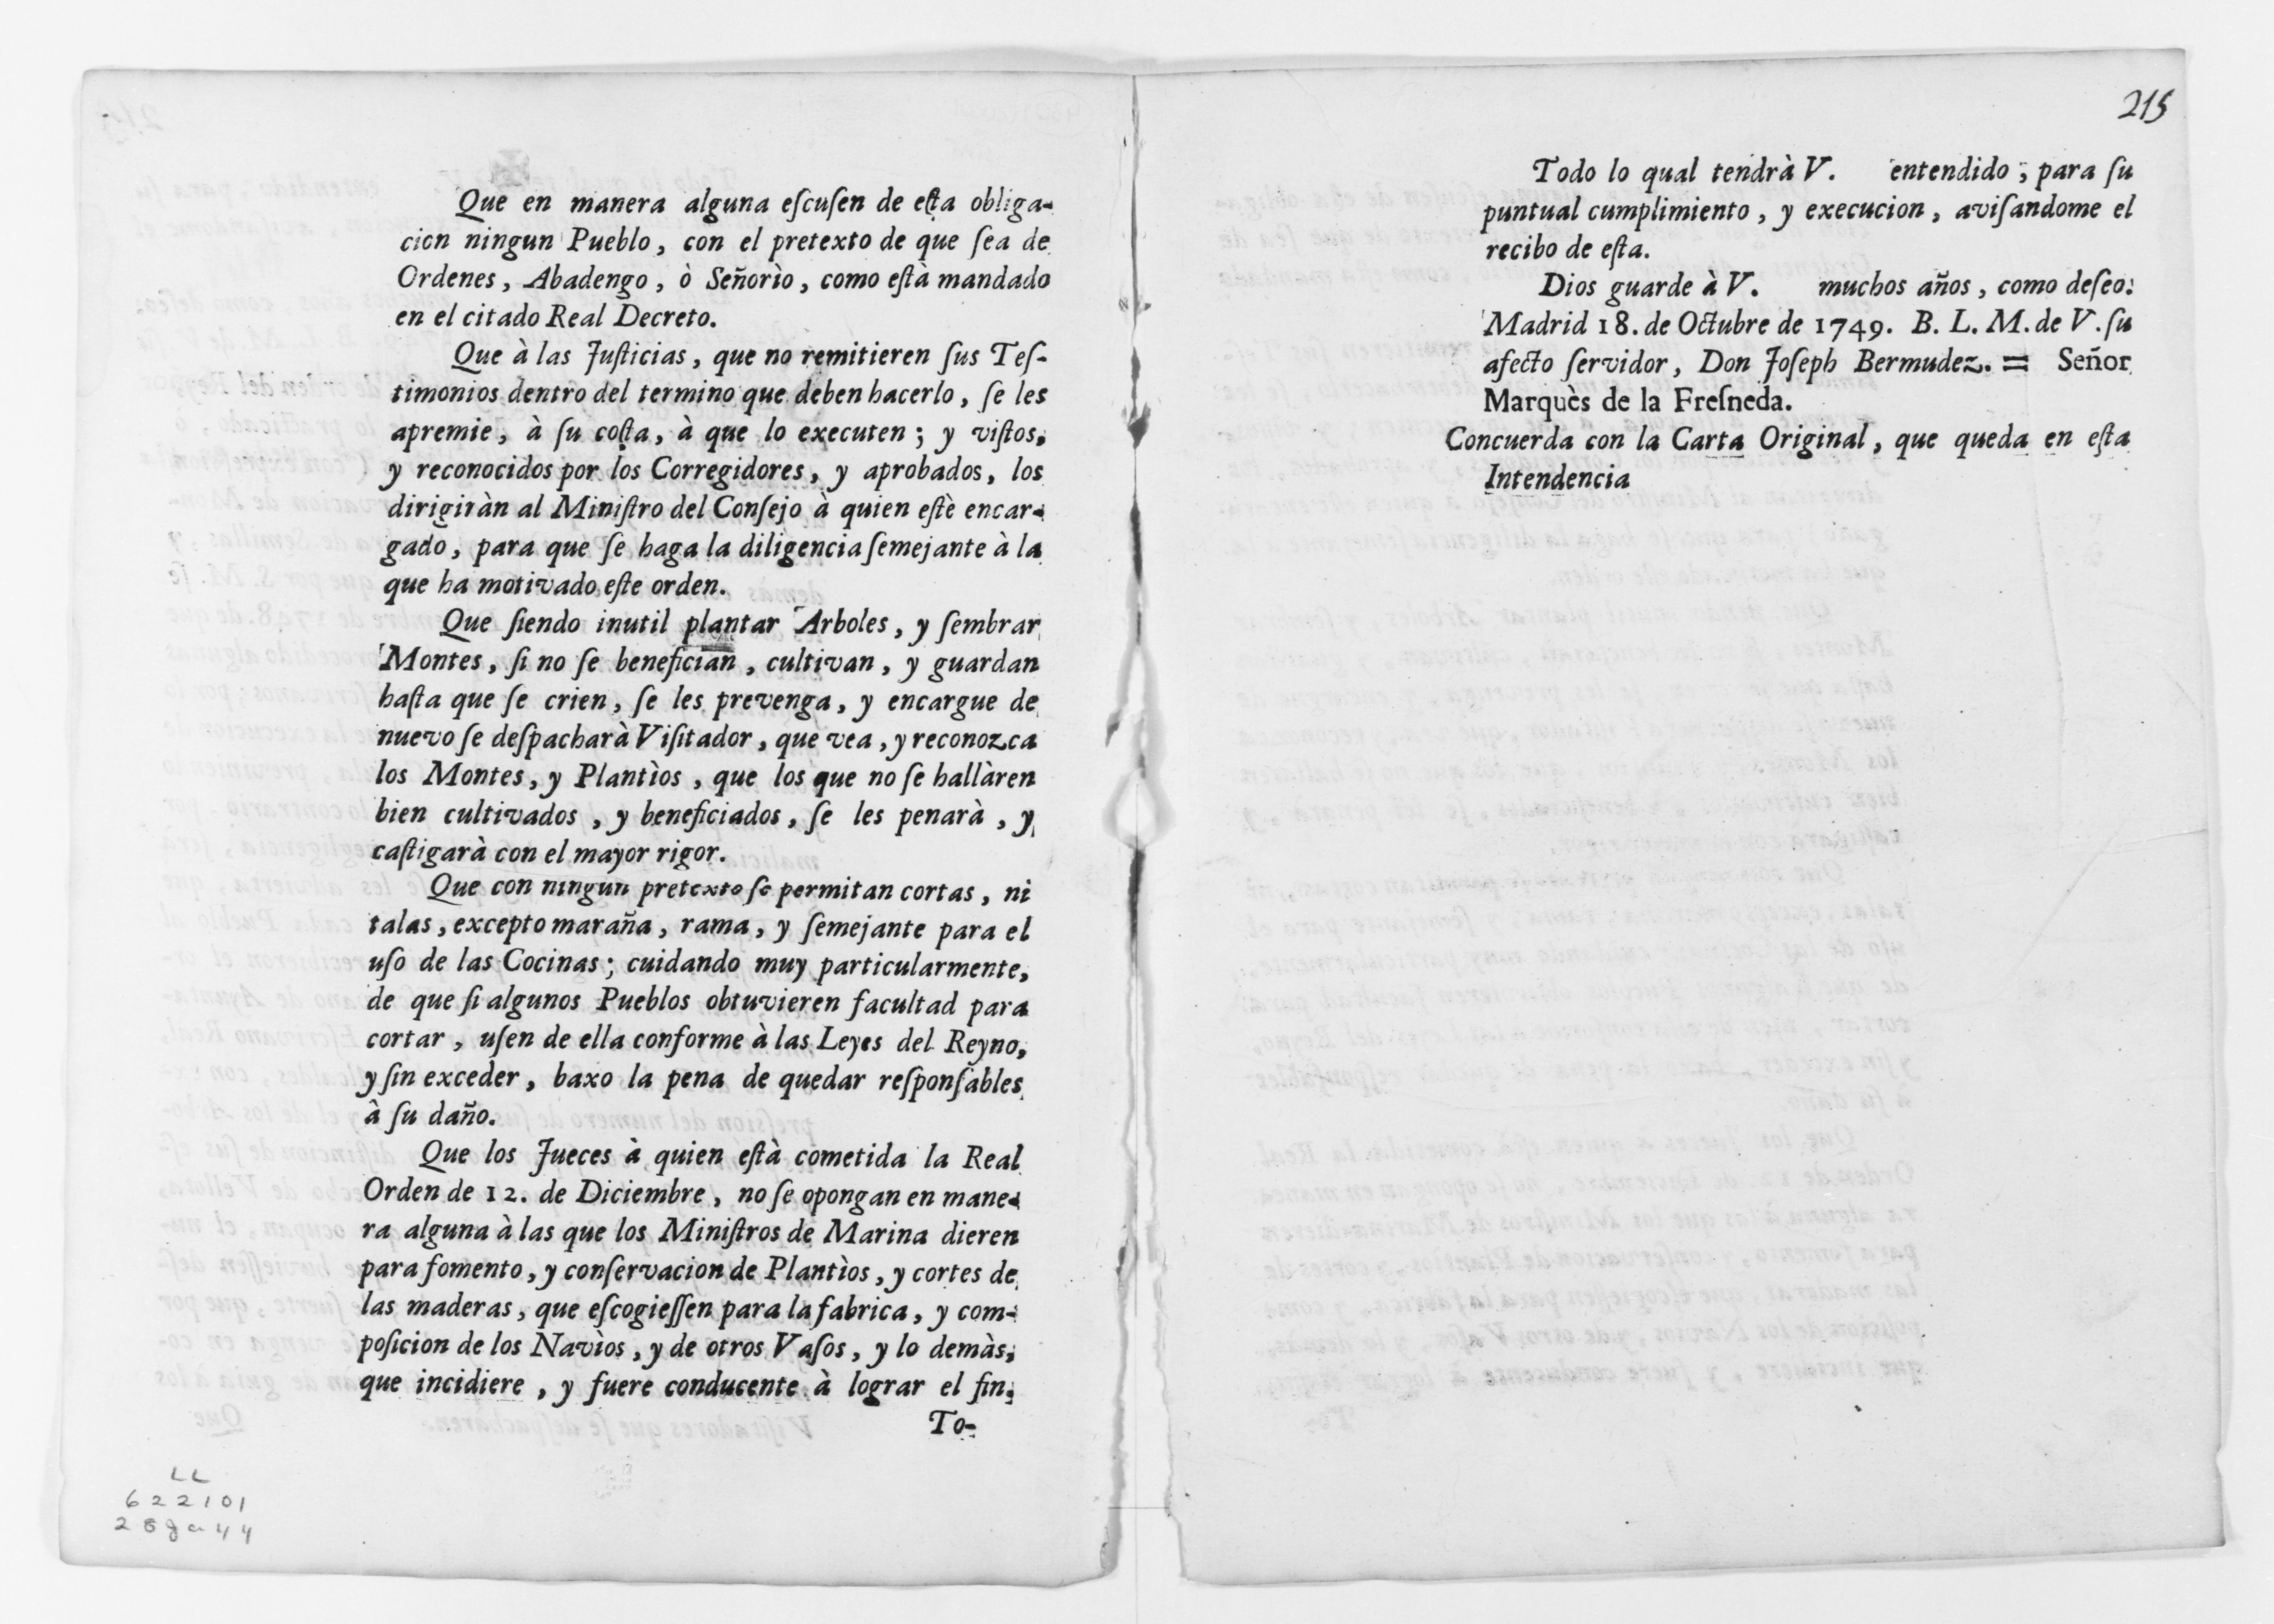 Que en manera alguna eſcuſen de eſta obliga-
cion ningun Pueblo, con el pretexto de que ſea de
Ordenes, Abadengo, ò Señorìo, como eſtà mandado
en el citado Real Decreto.
Que à las Juſticias, que no remitieren ſus Teſ-
timonios dentro del termino que deben hacerlo, ſe les
apremie, à ſu coſta, à que lo executen; y viſtos,
y reconocidos por los Corregidores, y aprobados, los
dirigiràn al Miniſtro del Conſejo à quien eſtè encar-
gado, para que ſe haga la diligencia ſemejante à la
que ha motivado eſte orden.
Que ſiendo inutil plantar Arboles, y ſembrar
Montes, ſi no ſe benefician, cultivan, y guardan
haſta que ſe crien, ſe les prevenga, y encargue de
nuevo ſe deſpacharà Viſitador, que vea, y reconozca
los Montes, y Plantìos, que los que no ſe hallàren
bien cultivados, y beneficiados, ſe les penarà, y
caſtigarà con el mayor rigor.
Que con ningun pretexto ſe permitan cortas, ni
talas, excepto maraña, rama, y ſemejante para el
uſo de las Cocinas; cuidando muy particularmente,
de que ſi algunos Pueblos obtuvieren facultad para
cortar, uſen de ella conforme à las Leyes del Reyno,
y ſin exceder, baxo la pena de quedar reſponſables
à ſu daño.
Que los Jueces à quien eſtà cometida la Real
Orden de 12. de Diciembre, no ſe opongan en mane-
ra alguna à las que los Miniſtros de Marina dieren
para fomento, y conſervacion de Plantìos, y cortes de
las maderas, que eſcogieſſen para la fabrica, y com-
poſicion de los Navìos, y de otros Vaſos, y lo demàs,
que incidiere, y fuere conducente à lograr el fin.
To-
LL
622101
28ga44
215
Todo lo qual tendrà V. entendido; para ſu
puntual cumplimiento, y execucion, aviſandome el
recibo de eſta.
Dios guarde à V. muchos años, como deſeo:
Madrid 18. de Octubre de 1749. B. L. M. de V. ſu
afecto ſervidor, Don Joſeph Bermudez. = Señor
Marquès de la Freſneda.
Concuerda con la Carta Original, que queda en eſta
Intendencia